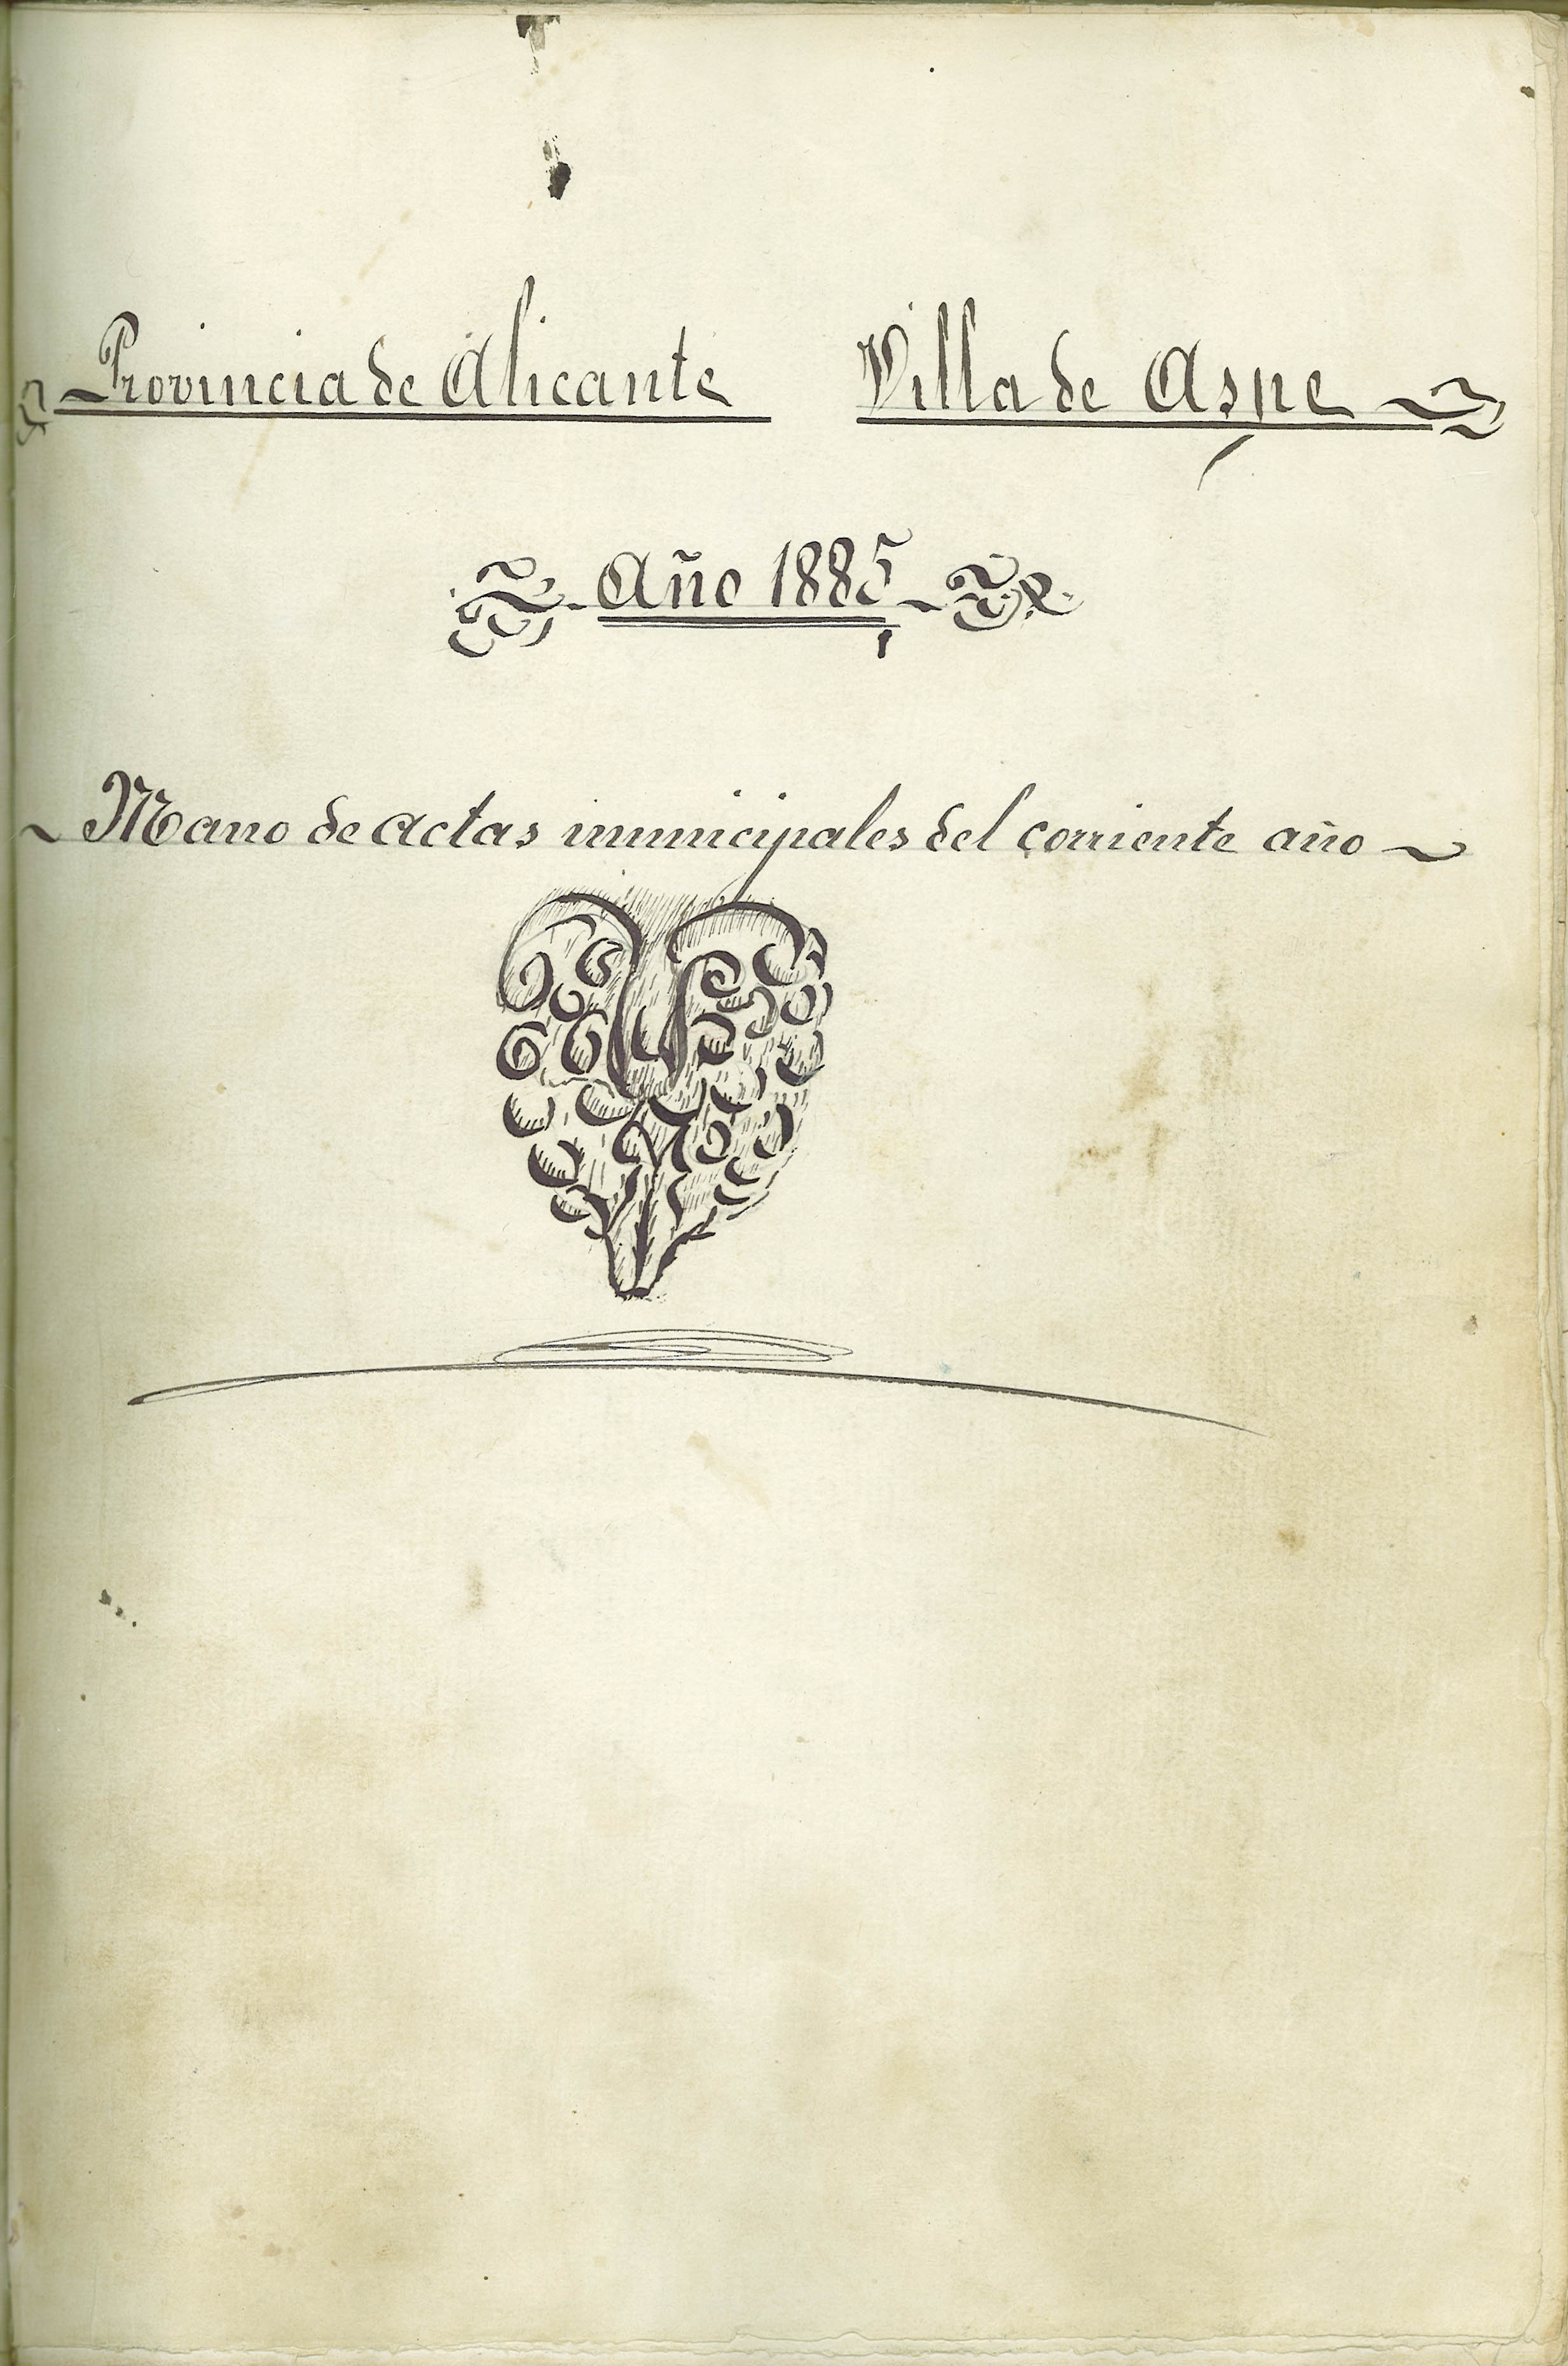 Provincia de Alicante Villa de Aspe
Año 1885
Mano de actas municipales del corriente año